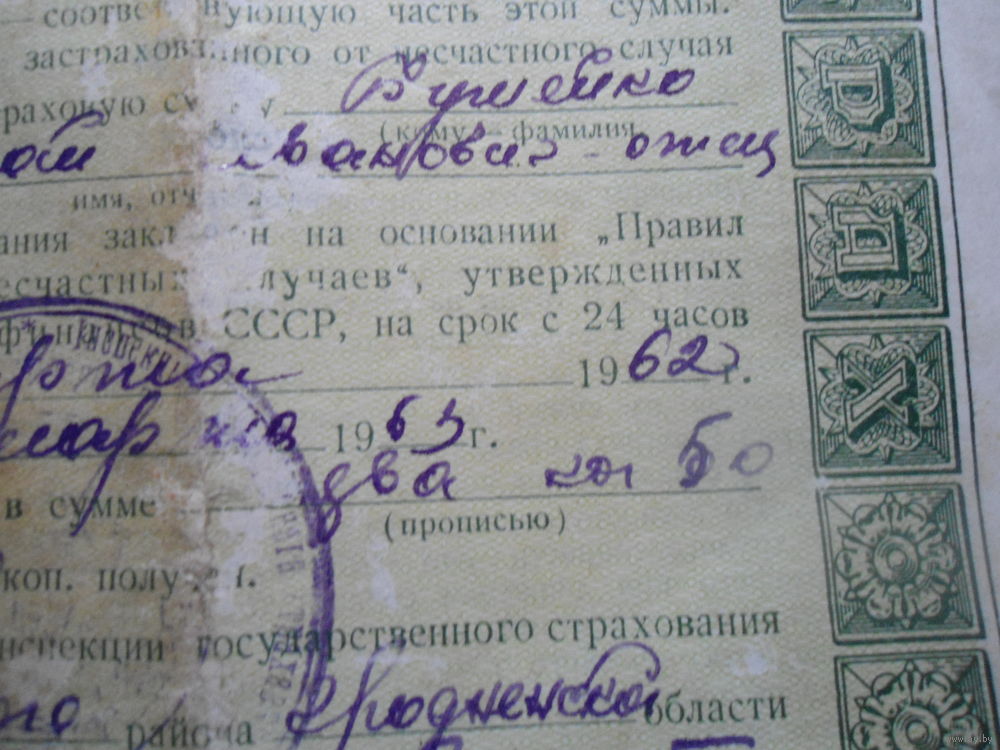 соответствующую часть этой суммы.
застрахованного от несчастного случая
страховую сумму
(кому — фамилия,
Ивановна - отец
имя, отчество
ания заключен на основании „Правил
несчастных случаев“, утвержденных
финансов СССР, на срок с 24 часов
марта 1962 г.
марта 1963 г.
в сумме два 50
(прописью)
коп. получил.
инспекции государственного страхования
ого района Гродненской области
Д
Ц
Х
www.ay.by